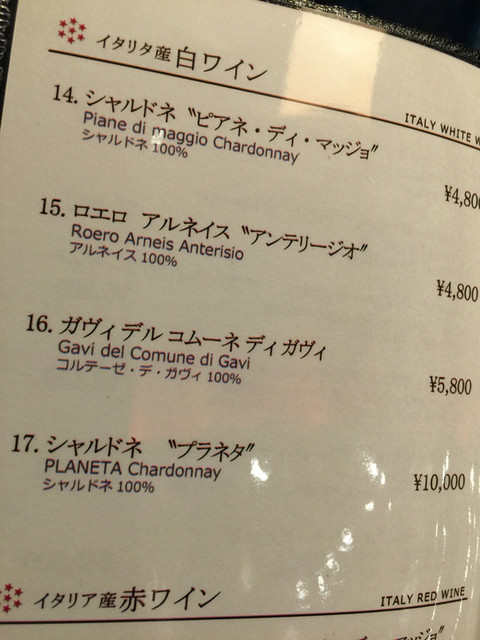 イタリタ産 白ワイン
ITALY WHITE W
14. シャルドネ〝ピアネ・ディ・マッジョ〞
Piane di maggio Chardonnay
シャルドネ 100%
¥4,800
15. ロエロ アルネイス〝アンテリージオ〞
Roero Arneis Anterisio
アルネイス 100%
¥4,800
16. ガヴィ デル コムーネ ディ ガヴィ
Gavi del Comune di Gavi
コルテーゼ・デ・ガヴィ 100%
¥5,800
17. シャルドネ 〝プラネタ〞
PLANETA Chardonnay
シャルドネ 100%
¥10,000
イタリア産 赤ワイン
ITALY RED WINE